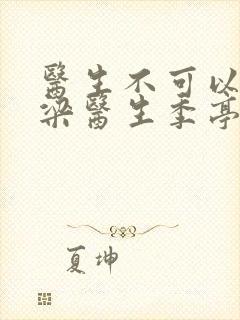 醫生不可以
梁醫生季亭
夏坤